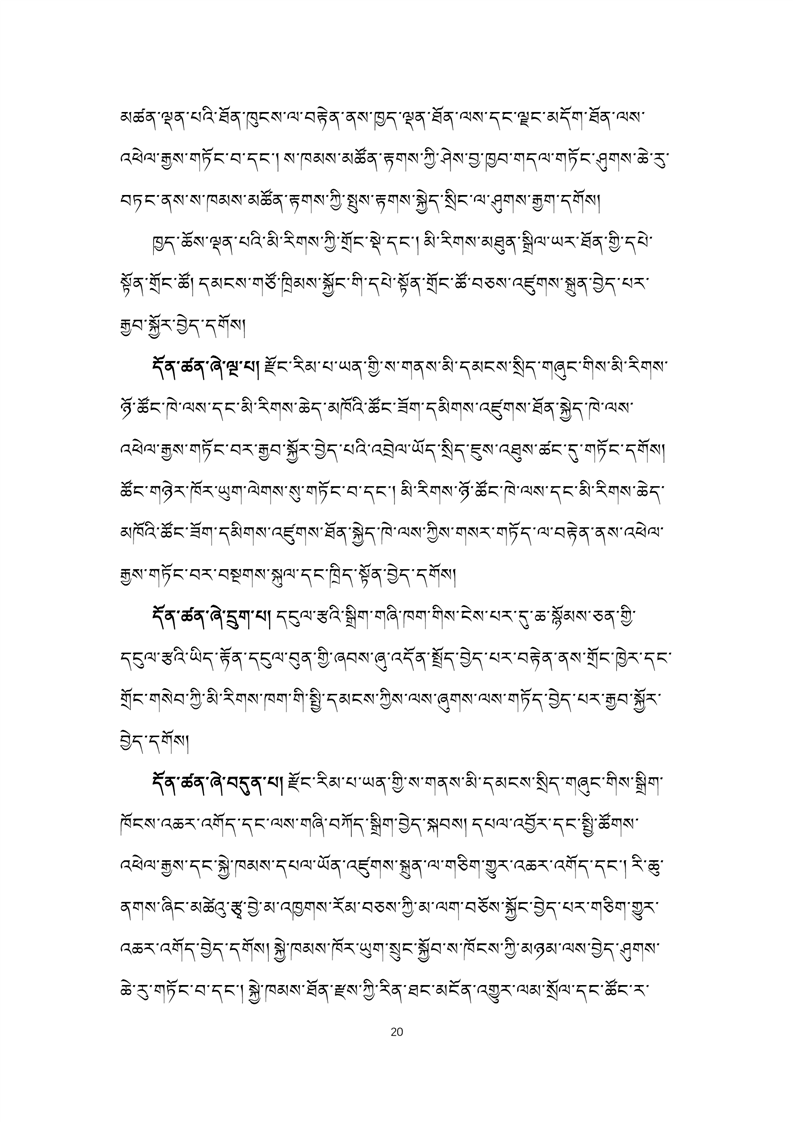 མཚན་ལྡན་པའི་ཐོན་ཁུངས་ལ་བརྟེན་ནས་ཁྱད་ལྡན་ཐོན་ལས་དང་ལྗང་མདོག་ཐོན་ལས་
འཕེལ་རྒྱས་གཏོང་བ་དང་། ས་ཁམས་མཚོན་རྟགས་ཀྱི་ཤེས་བྱ་ཁྱབ་གདལ་གཏོང་ཤུགས་ཆེ་རུ་
བཏང་ནས་ས་ཁམས་མཚོན་རྟགས་ཀྱི་སྤུས་རྟགས་སྐྱེད་སྲིང་ལ་ཤུགས་རྒྱག་དགོས།
ཁྱད་ཆོས་ལྡན་པའི་མི་རིགས་ཀྱི་གྲོང་སྡེ་དང་། མི་རིགས་མཐུན་སྒྲིལ་ཡར་ཐོན་གྱི་དཔེ་
སྟོན་གྲོང་ཚོ། དམངས་གཙོ་ཁྲིམས་སྐྱོང་གི་དཔེ་སྟོན་གྲོང་ཚོ་བཅས་འཛུགས་སྐྲུན་བྱེད་པར་
རྒྱབ་སྐྱོར་བྱེད་དགོས།
དོན་ཚན་ཞེ་ལྔ་པ། རྫོང་རིམ་པ་ཡན་གྱི་ས་གནས་མི་དམངས་སྲིད་གཞུང་གིས་མི་རིགས་
ཉོ་ཚོང་ཁེ་ལས་དང་མི་རིགས་ཆེད་མཁོའི་ཚོང་ཟོག་དམིགས་འཛུགས་ཐོན་སྐྱེད་ཁེ་ལས་
འཕེལ་རྒྱས་གཏོང་བར་རྒྱབ་སྐྱོར་བྱེད་པའི་འབྲེལ་ཡོད་སྲིད་ཇུས་འཐུས་ཚང་དུ་གཏོང་དགོས།
ཚོང་གཉེར་ཁོར་ཡུག་ལེགས་སུ་གཏོང་བ་དང་། མི་རིགས་ཉོ་ཚོང་ཁེ་ལས་དང་མི་རིགས་ཆེད་
མཁོའི་ཚོང་ཟོག་དམིགས་འཛུགས་ཐོན་སྐྱེད་ཁེ་ལས་ཀྱིས་གསར་གཏོད་ལ་བརྟེན་ནས་འཕེལ་
རྒྱས་གཏོང་བར་བསྔགས་སྐུལ་དང་ཁྲིད་སྟོན་བྱེད་དགོས།
དོན་ཚན་ཞེ་དྲུག་པ། དངུལ་རྩའི་སྒྲིག་གཞི་ཁག་གིས་ངེས་པར་དུ་ཆ་སྙོམས་ཅན་གྱི་
དངུལ་རྩའི་ཡིད་རྟོན་དངུལ་བུན་གྱི་ཞབས་ཞུ་འདོན་སྤྲོད་བྱེད་པར་བརྟེན་ནས་གྲོང་ཁྱེར་དང་
གྲོང་གསེབ་ཀྱི་མི་རིགས་ཁག་གི་སྤྱི་དམངས་ཀྱིས་ལས་ཞུགས་ལས་གཏོད་བྱེད་པར་རྒྱབ་སྐྱོར་
བྱེད་དགོས།
དོན་ཚན་ཞེ་བདུན་པ། རྫོང་རིམ་པ་ཡན་གྱི་ས་གནས་མི་དམངས་སྲིད་གཞུང་གིས་སྒྲིག་
ཁོངས་འཆར་འགོད་དང་ལས་གཞི་བཀོད་སྒྲིག་བྱེད་སྐབས། དཔལ་འབྱོར་དང་སྤྱི་ཚོགས་
འཕེལ་རྒྱས་དང་སྐྱེ་ཁམས་དཔལ་ཡོན་འཛུགས་སྐྲུན་ལ་གཅིག་གྱུར་འཆར་འགོད་དང་། རི་ཆུ་
ནགས་ཞིང་མཚེའུ་རྩྭ་བྱེ་མ་འཁྱགས་རོམ་བཅས་ཀྱི་མ་ལག་བཅོས་སྐྱོང་བྱེད་པར་གཅིག་གྱུར་
འཆར་འགོད་བྱེད་དགོས། སྐྱེ་ཁམས་ཁོར་ཡུག་སྲུང་སྐྱོབ་ས་ཁོངས་ཀྱི་མཉམ་ལས་བྱེད་ཤུགས་
ཆེ་རུ་གཏོང་བ་དང་། སྐྱེ་ཁམས་ཐོན་རྫས་ཀྱི་རིན་ཐང་མངོན་འགྱུར་ལམ་སྲོལ་དང་ཚོང་ར་
20